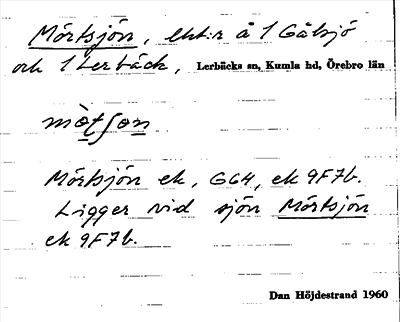 Mörtsjön, lht:r å 1 Gålsjö
och 1 Lerbäck, Lerbäcks sn, Kumla hd, Örebro län
mòtʃon
Mörtsjön ek, GG4, ek 9F7b.
Ligger vid sjön Mörtsjön
ek 9F7b.
Dan Höjdestrand 1960